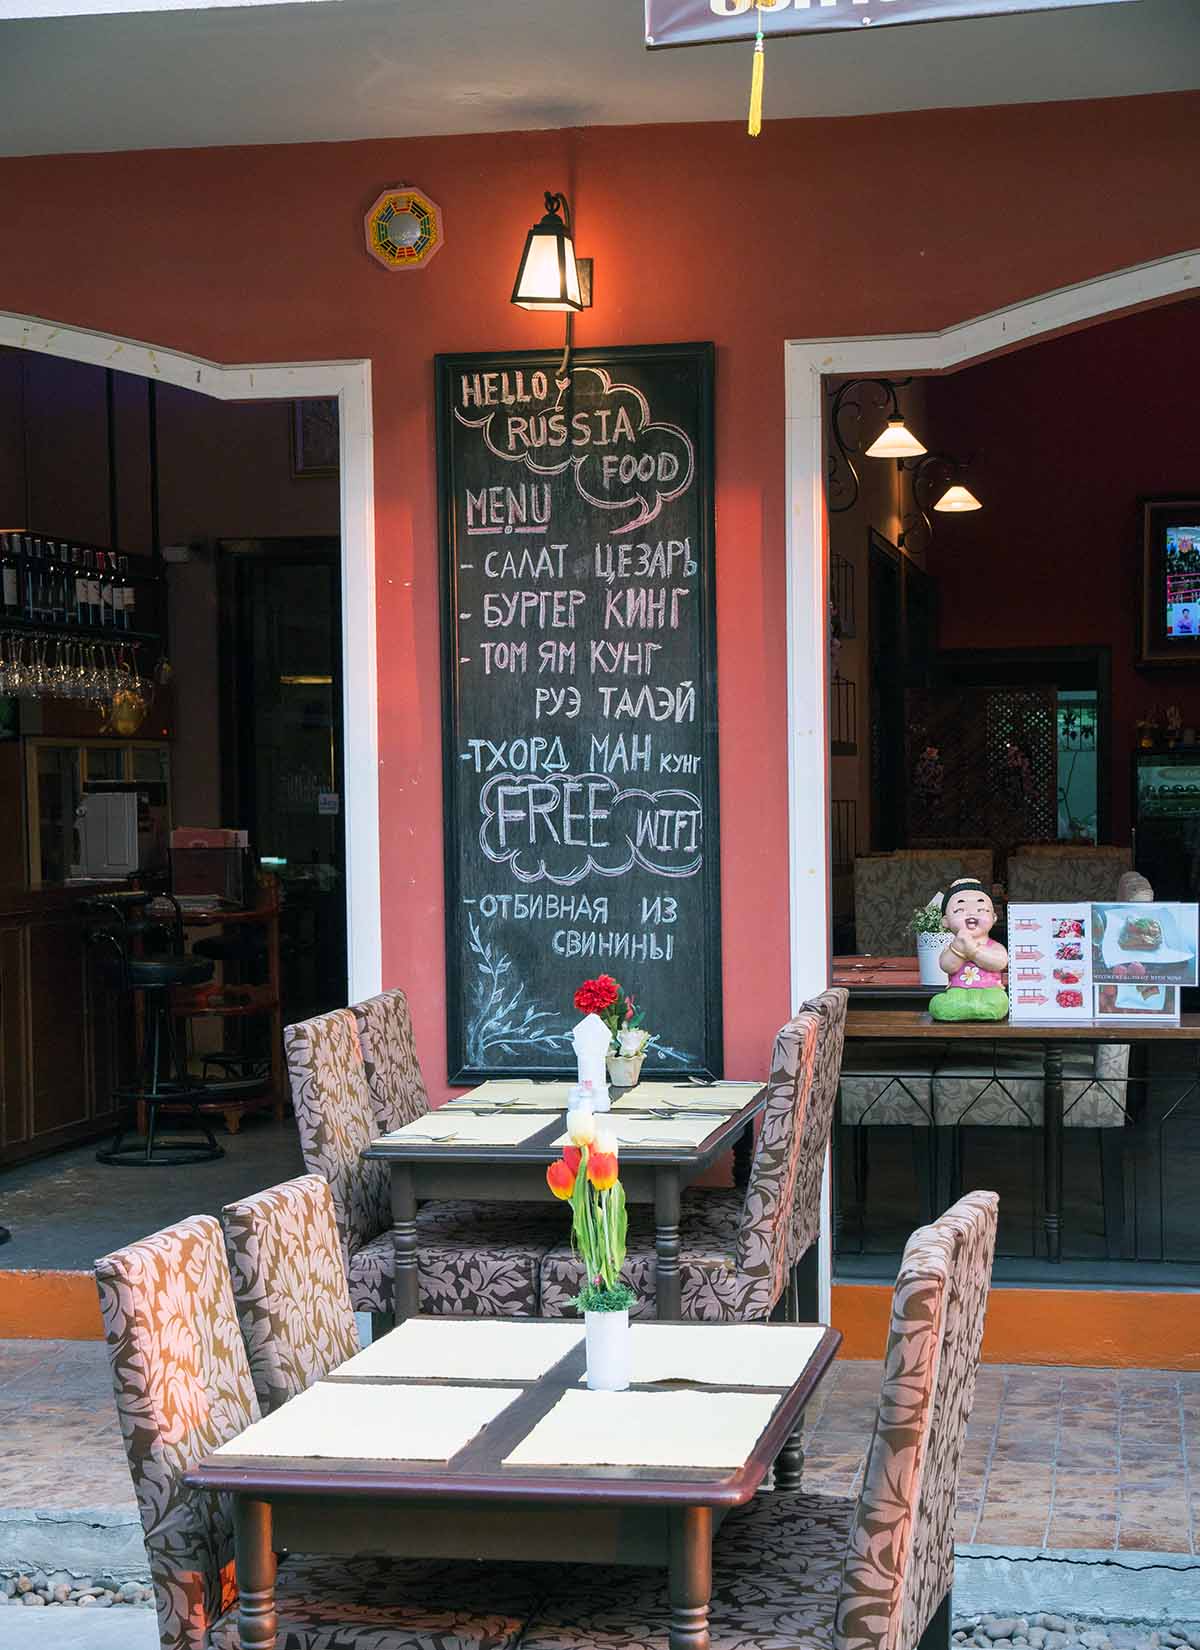 HELLO
RUSSIA
FOOD
MENU
- САЛАТ ЦЕЗАРЬ
- БУРГЕР КИНГ
- ТОМ ЯМ КУНГ
РУЭ ТАЛЭЙ
- ТХОРД МАН КУНГ
FREE WIFI
- ОТБИВНАЯ ИЗ
СВИНИНЫ